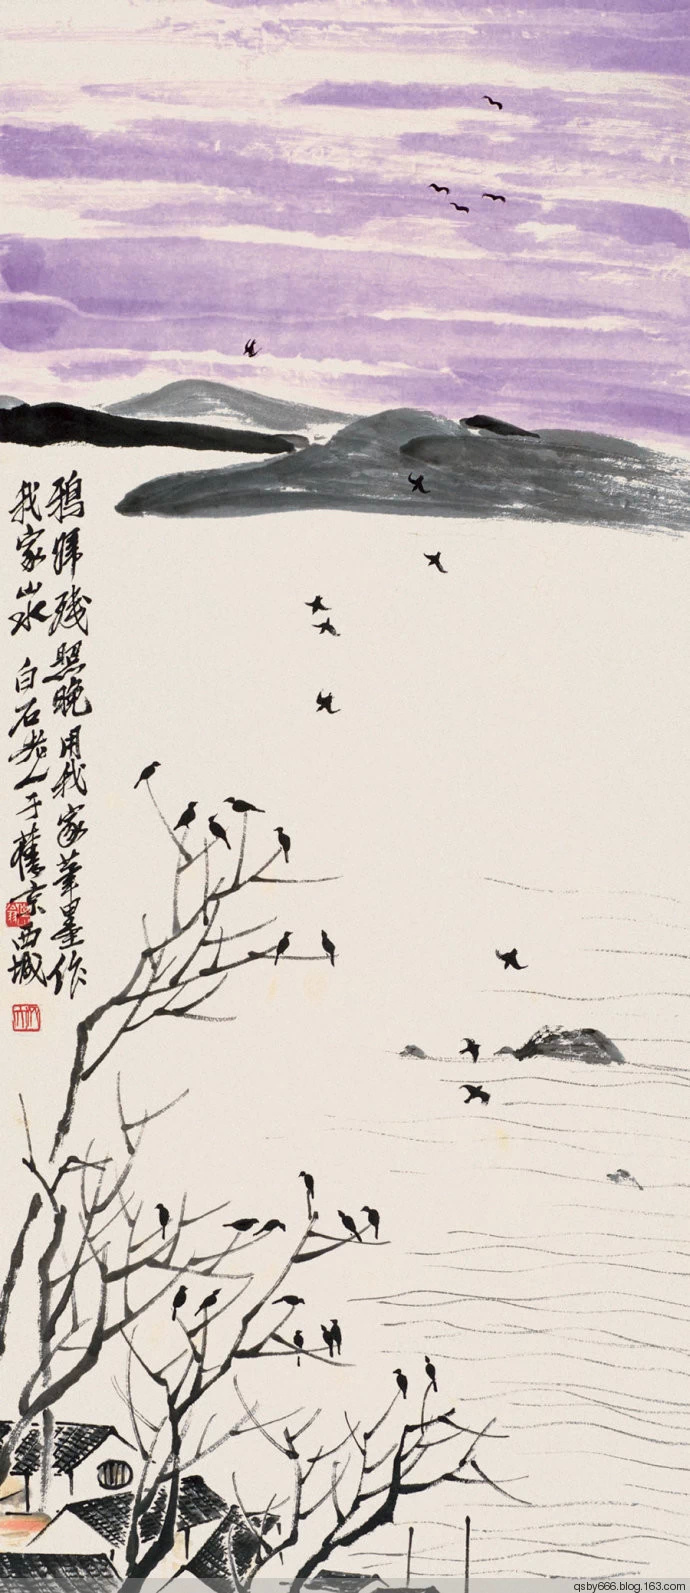 鴉歸殘照晚用我家筆墨作
我家山水 白石老人于舊京西城
qsby666.blog.163.com